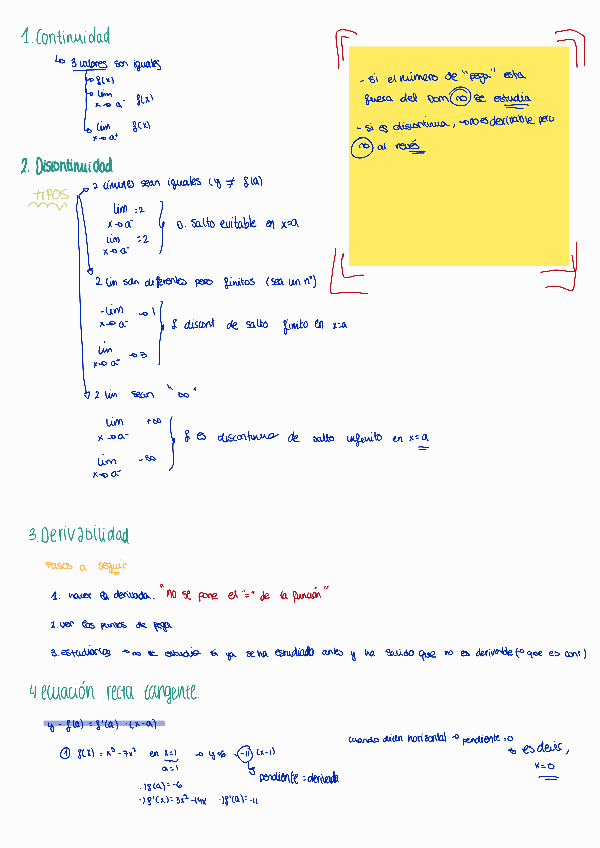 1. Continuidad
↳ 3 valores son iguales
f(x)
lim f(x)
x→a⁻
lim f(x)
x→a⁺
- si el número de "pega" esta
fuera del Dom no se estudia
- si es discontinua, →no es derivable pero
no al revés
2. Discontinuidad
TIPOS
2 límites sean iguales (y ≠ f(a)
lim =2
x→a⁻
lim =2
x→a⁻
D. salto evitable en x=a
2 lim san diferentes pero finitos (sea un nº)
-lim →1
x→a⁻
lim →3
x→a⁻
f discont de salto finito en x=a
2 lim sean "∞"
lim +∞
x→a⁻
lim -∞
x→a⁻
f es discontinua de salto infinito en x=a
3. Derivabilidad
Pasos a seguir
1. hacer la derivada. "no se pone el "=" de la función"
2. ver los puntos de pega
3. estudiarlos → no se estudia si ya se ha estudiado antes y ha salido que no es derivable (→ que es cont)
4. ecuación recta tangente.
y - f(a) = f'(a) · (x-a)
① f(x) = x³ - 7x² en x=1 → y+6 = -11 (x-1)
a=1
pendiente = derivada
·) f(a) = -6
·) f'(x) = 3x² - 14x ·) f'(a) = -11
cuando dicen horizontal → pendiente = 0
→ es decir,
x=0